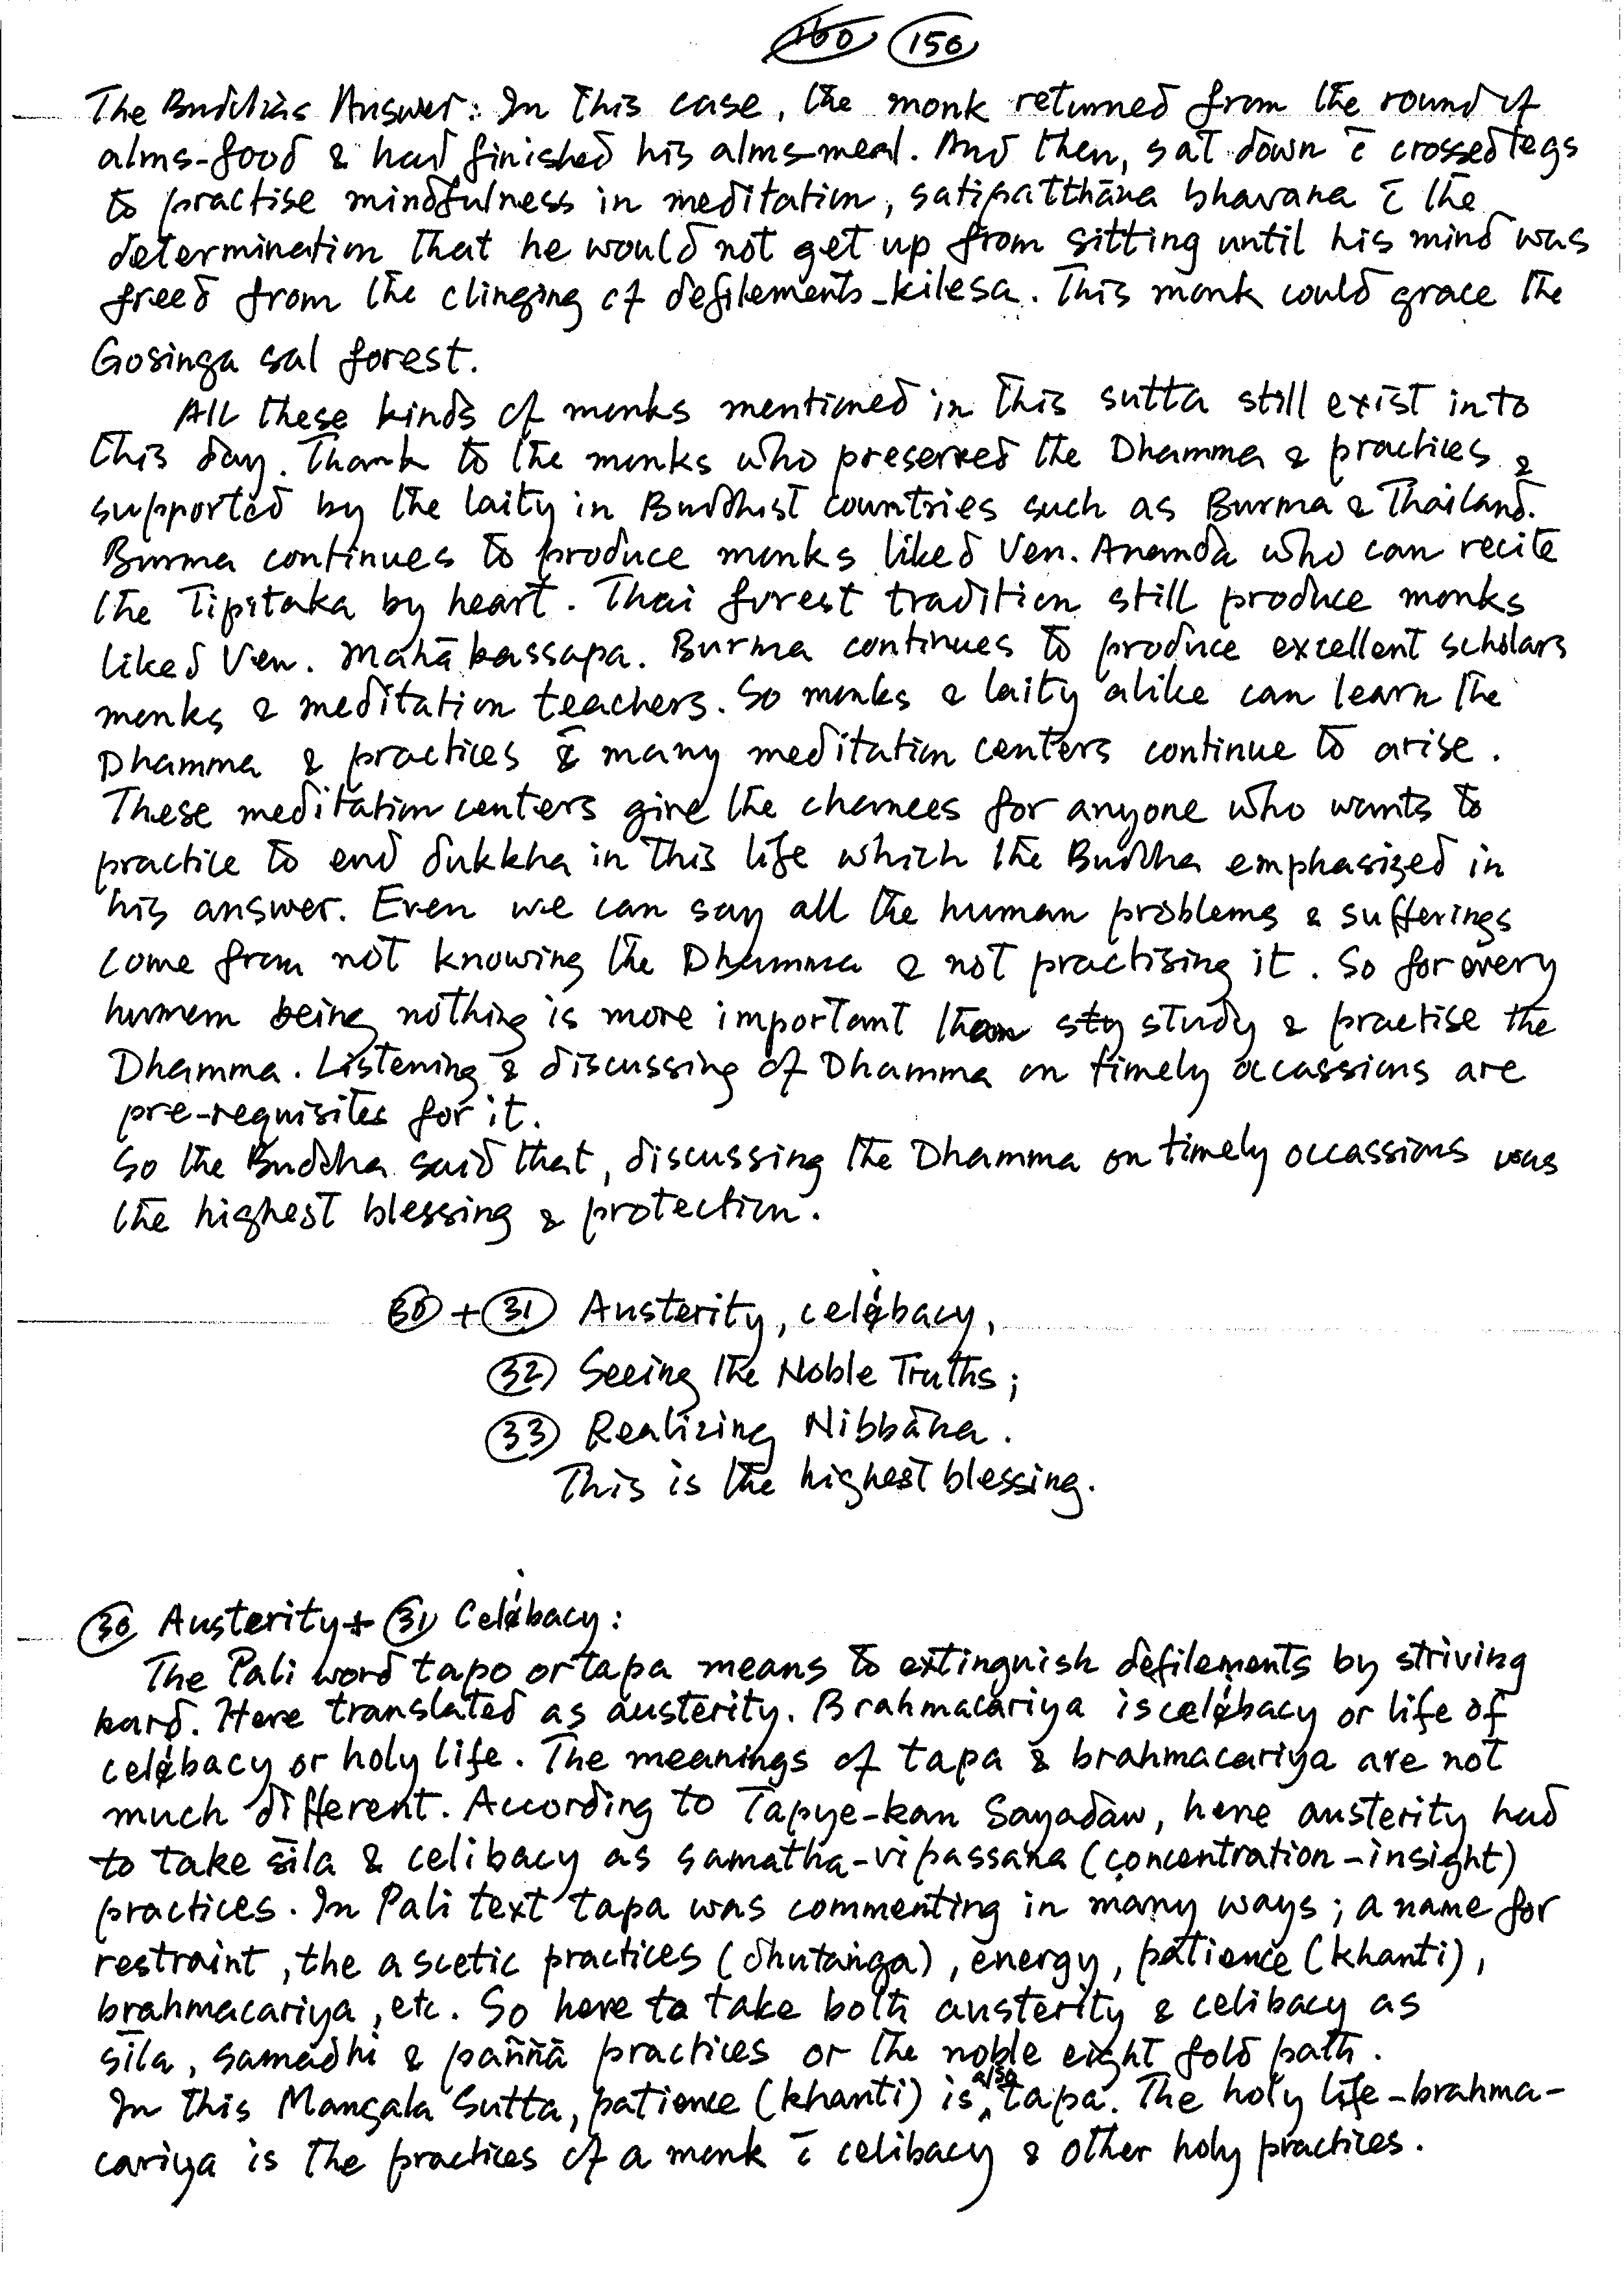 160 150
The Buddha's Answer: In this case, the monk returned from the round of
alms-food & had finished his alms-meal. And then, sat down c̄ crossed legs
to practise mindfulness in meditation, satipatthāna bhavana c̄ the
determination that he would not get up from sitting until his mind was
freed from the clinging of defilements-kilesa. This monk could grace the
Gosinga sal forest.
All these kinds of monks mentioned in this sutta still exist in to
this day. Thank to the monks who preserved the Dhamma & practices &
supported by the laity in Buddhist countries such as Burma & Thailand.
Burma continues to produce monks liked Ven. Ananda who can recite
the Tipitaka by heart. Thai forest tradition still produce monks
liked Ven. Mahākassapa. Burma continues to produce excellent scholars
monks & meditation teachers. So monks & laity alike can learn the
Dhamma & practices & many meditation centers continue to arise.
These meditation centers give the chances for anyone who wants to
practice to end dukkha in this life which the Buddha emphasized in
his answer. Even we can say all the human problems & sufferings
come from not knowing the Dhamma & not practising it. So for every
human being nothing is more important than sty study & practise the
Dhamma. Listening & discussing of Dhamma on timely occassions are
pre-requisites for it.
So the Buddha said that, discussing the Dhamma on timely occassions was
the highest blessing & protection.
30 + 31 Austerity, celibacy,
32 Seeing the Noble Truths;
33 Realizing Nibbāna.
This is the highest blessing.
30 Austerity + 31 Celibacy:
The Pali word tapo or tapa means to extinguish defilements by striving
hard. Here translated as austerity. Brahmacariya is celibacy or life of
celibacy or holy life. The meanings of tapa & brahmacariya are not
much different. According to Tapye-kan Sayadaw, here austerity had
to take sīla & celibacy as samatha-vipassana (concentration-insight)
practices. In Pali text tapa was commenting in many ways; a name for
restraint, the ascetic practices (dhutaṅga), energy, patience (khanti),
brahmacariya, etc. So here to take both austerity & celibacy as
sīla, samādhi & paññā practices or the noble eight fold path.
In this Mangala Sutta, patience (khanti) is also tapa. The holy life-brahma-
cariya is the practices of a monk c̄ celibacy & other holy practices.